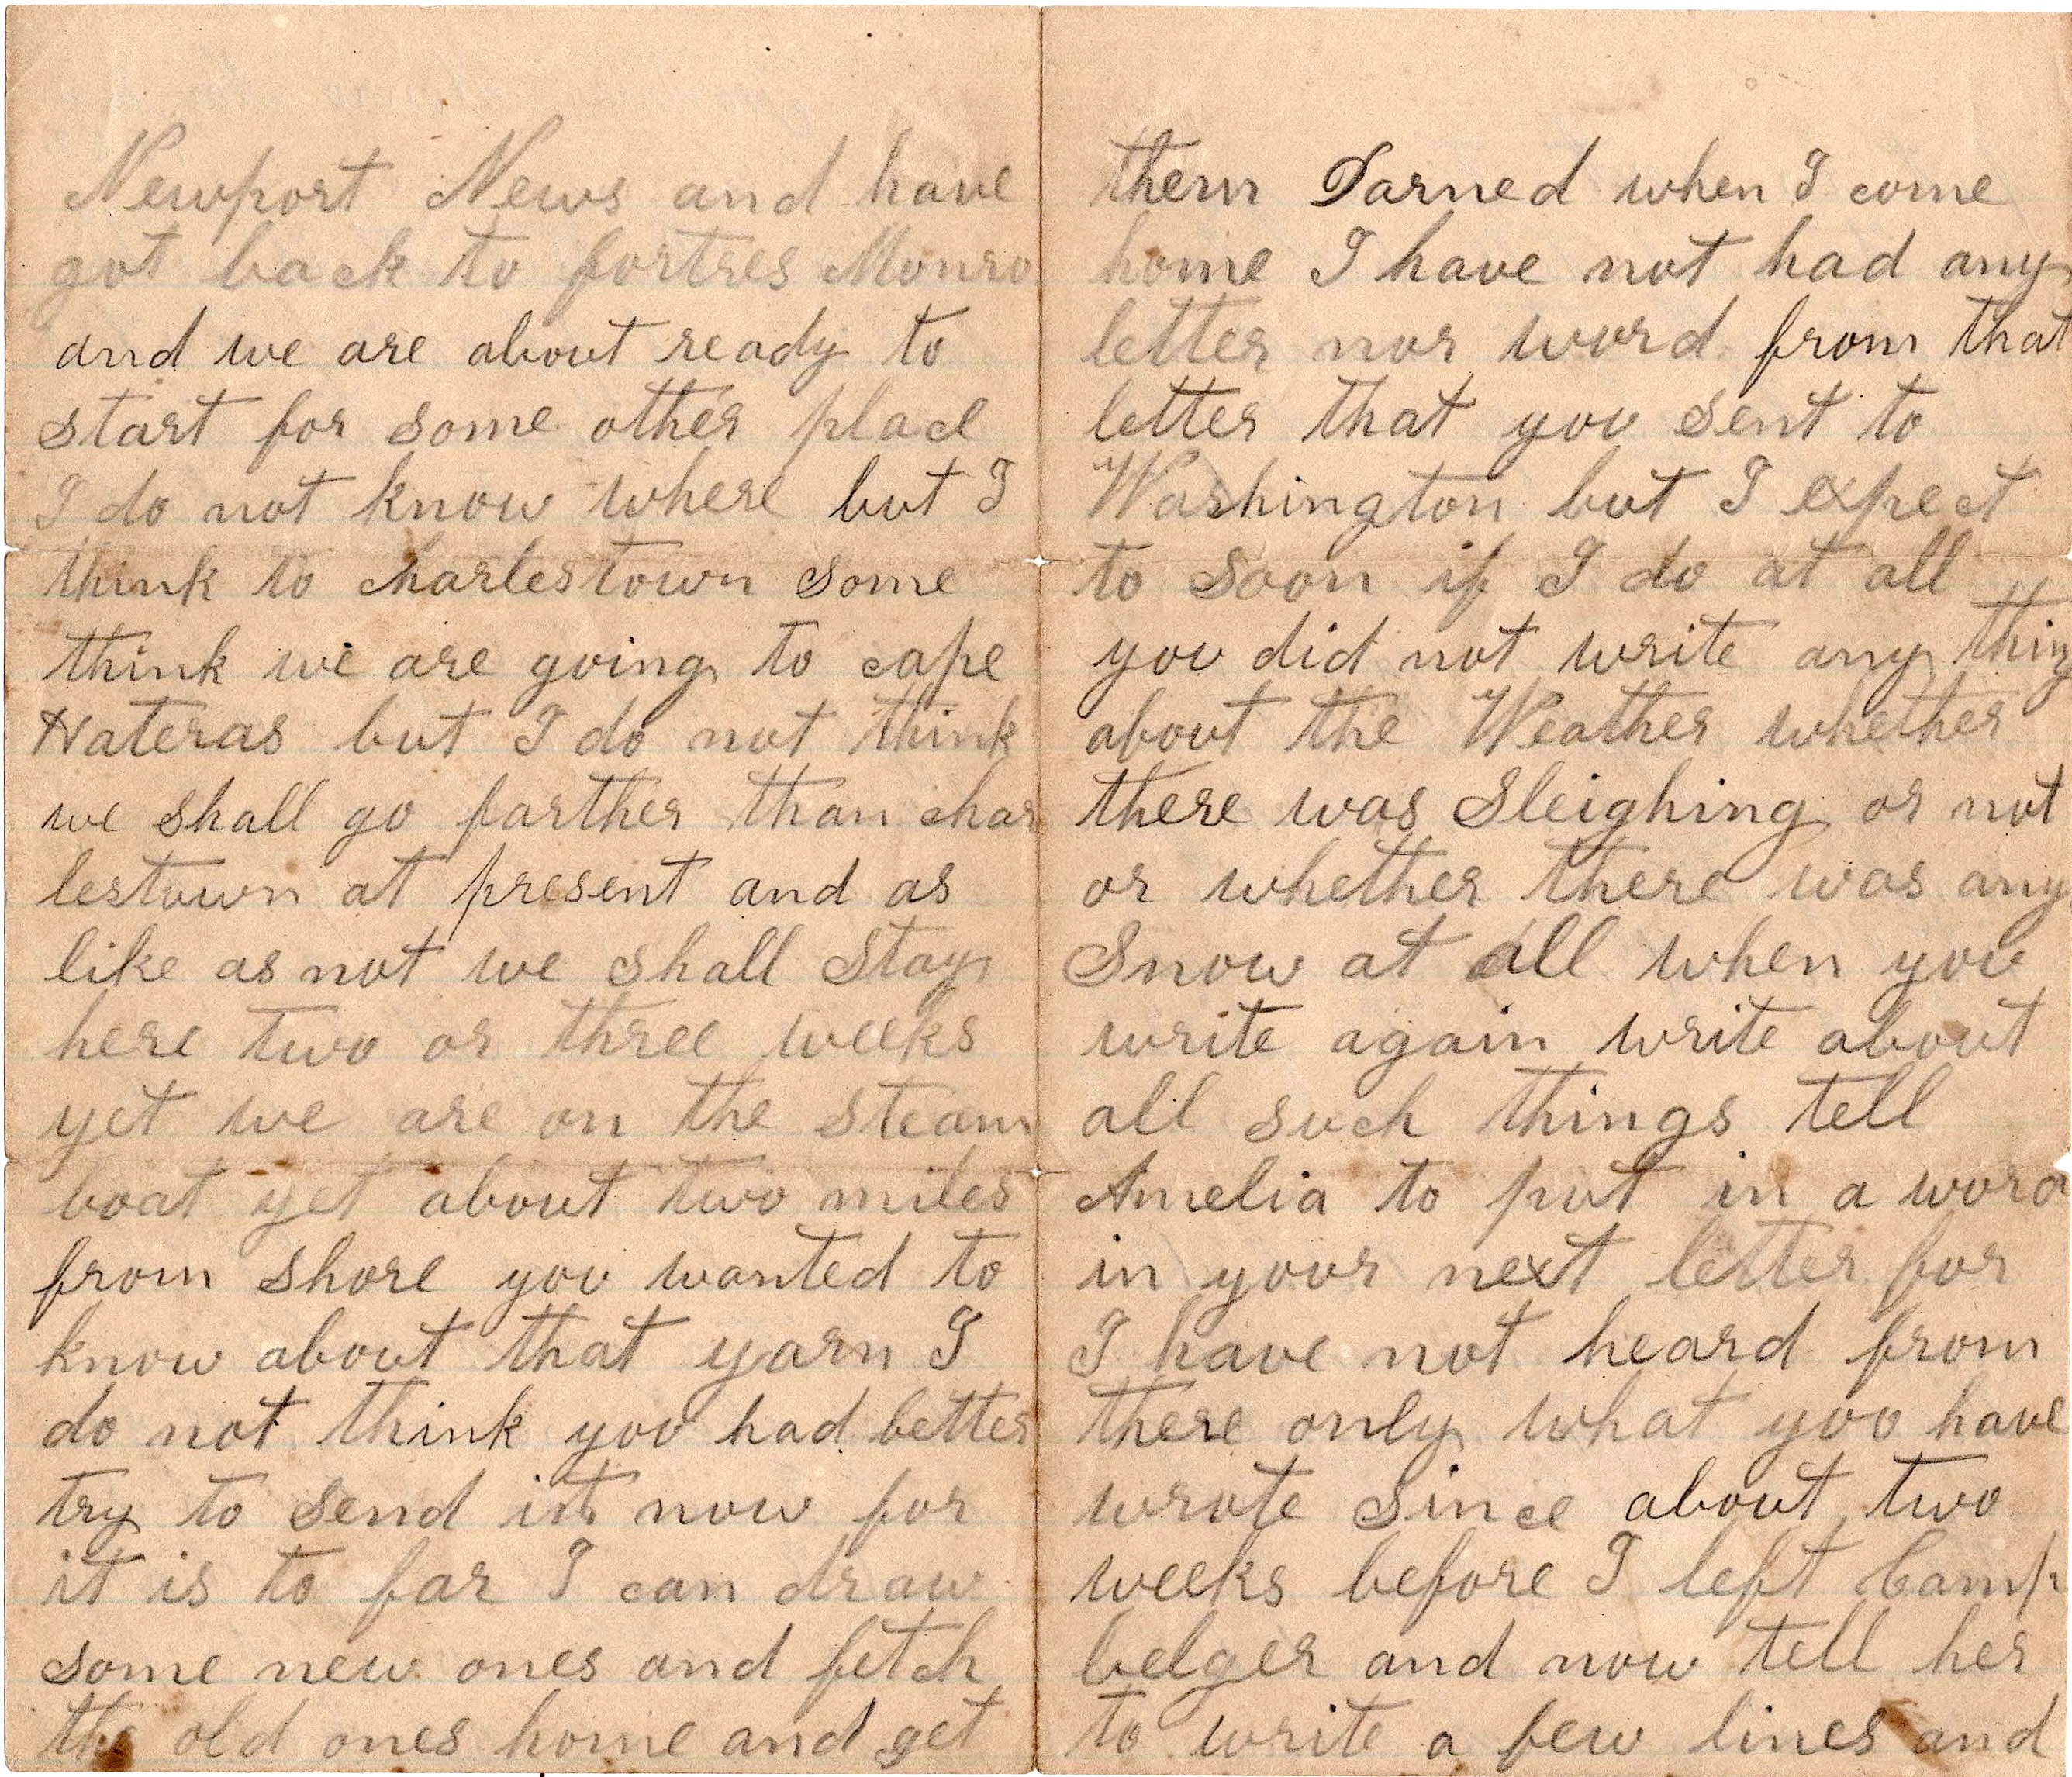 Newport News and have
got back to fortres Monro
and we are about ready to
start for some other place
I do not know where but I
think to charlestown some
think we are going to cape
Hateras but I do not think
we shall go farther than char
lestown at present and as
like as not we shall stay
here two or three weeks
yet we are on the steam
boat yet about two miles
from shore you wanted to
know about that yarn I
do not think you had better
try to send it now for
it is to far I can draw
some new ones and fetch
the old ones home and get
them Darned when I come
home I have not had any
letter nor word from that
letter that you sent to
Washington but I expect
to soon if I do at all
you did not write any thing
about the Weather whether
there was Sleighing or not
or whether there was any
Snow at all when you
write again write about
all such things tell
Amelia to put in a word
in your next letter for
I have not heard from
there only what you have
wrote since about two
weeks before I left Camp
belger and now tell her
to write a few lines and